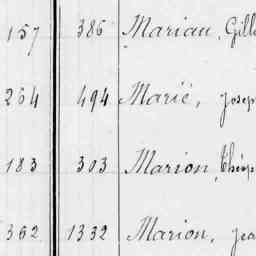 157 386 Mariau, Gill
264 494 Marié, josep
183 303 Marion, Théop
362 1332 Marion, jea